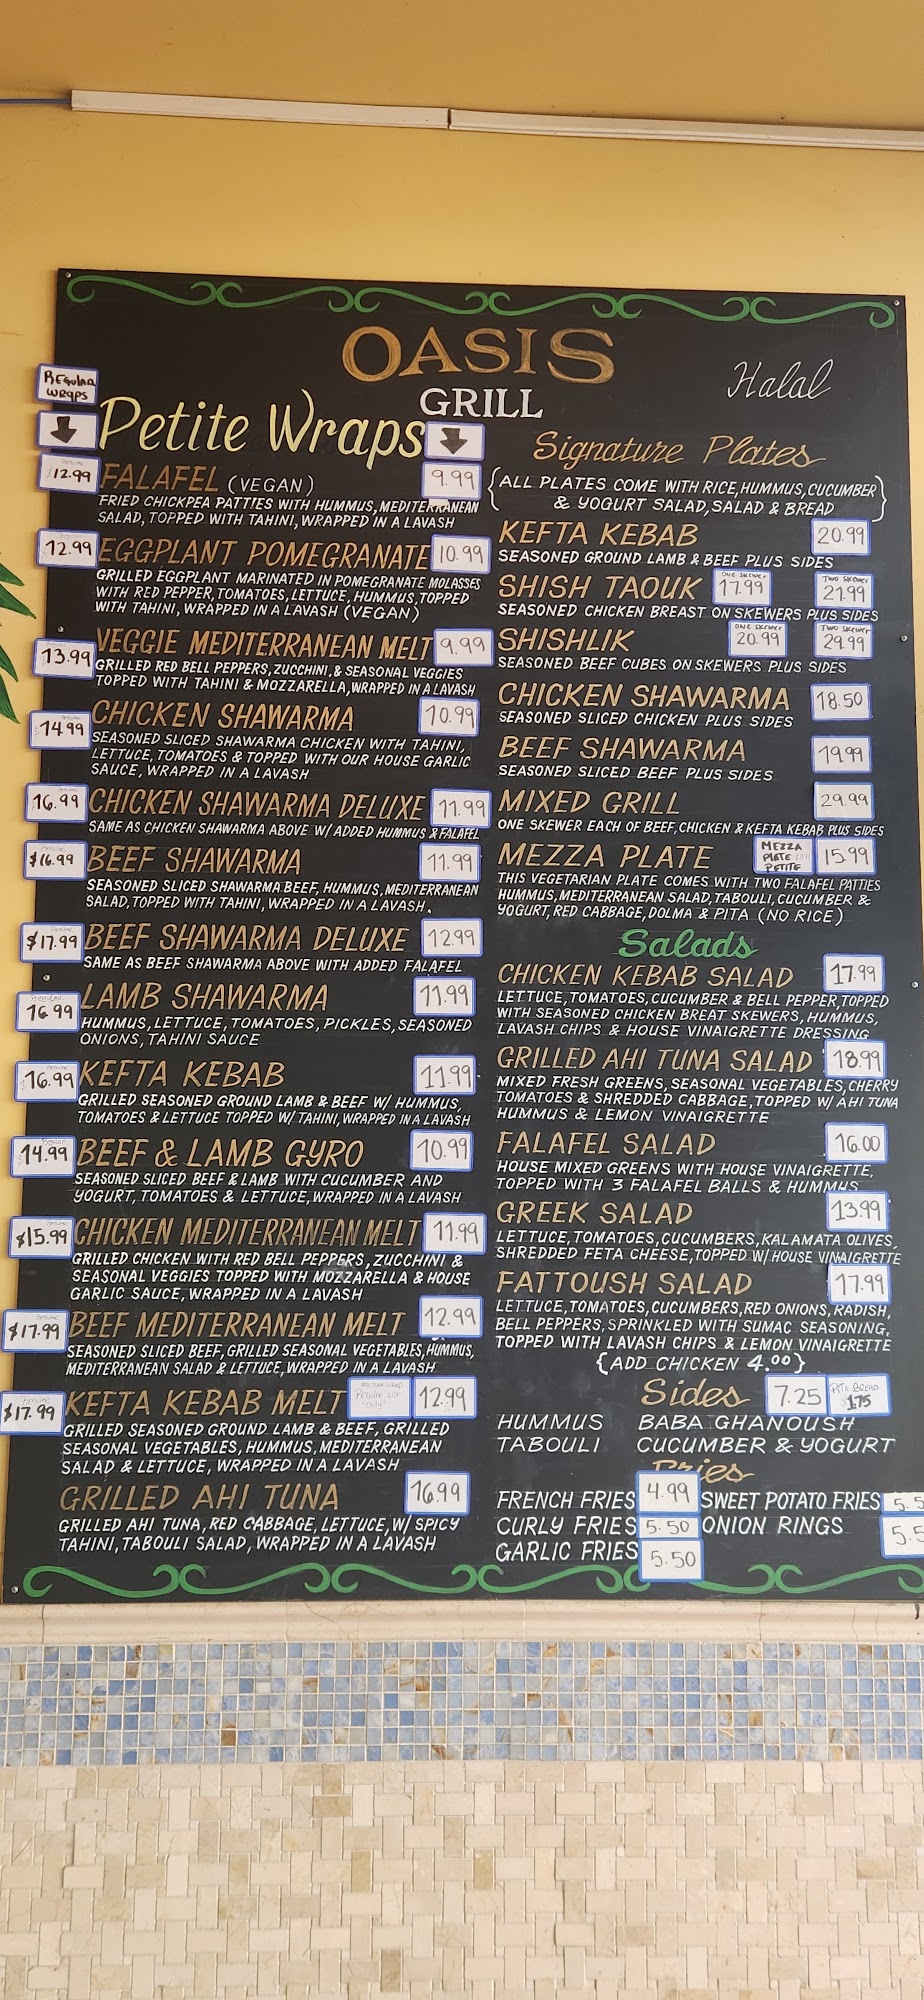 OASIS
GRILL
Halal
REGULAR
WRAPS
Petite Wraps
12.99 FALAFEL (VEGAN) 9.99
FRIED CHICKPEA PATTIES WITH HUMMUS, MEDITERRANEAN
SALAD, TOPPED WITH TAHINI, WRAPPED IN A LAVASH
12.99 EGGPLANT POMEGRANATE 10.99
GRILLED EGGPLANT MARINATED IN POMEGRANATE MOLASSES
WITH RED PEPPER, TOMATOES, LETTUCE, HUMMUS, TOPPED
WITH TAHINI, WRAPPED IN A LAVASH (VEGAN)
13.99 VEGGIE MEDITERRANEAN MELT 9.99
GRILLED RED BELL PEPPERS, ZUCCHINI, & SEASONAL VEGGIES
TOPPED WITH TAHINI & MOZZARELLA, WRAPPED IN A LAVASH
14.99 CHICKEN SHAWARMA 10.99
SEASONED SLICED SHAWARMA CHICKEN WITH TAHINI,
LETTUCE, TOMATOES & TOPPED WITH OUR HOUSE GARLIC
SAUCE, WRAPPED IN A LAVASH
16.99 CHICKEN SHAWARMA DELUXE 11.99
SAME AS CHICKEN SHAWARMA ABOVE W/ ADDED HUMMUS & FALAFEL
$16.99 BEEF SHAWARMA 11.99
SEASONED SLICED SHAWARMA BEEF, HUMMUS, MEDITERRANEAN
SALAD, TOPPED WITH TAHINI, WRAPPED IN A LAVASH.
$17.99 BEEF SHAWARMA DELUXE 12.99
SAME AS BEEF SHAWARMA ABOVE WITH ADDED FALAFEL
REGULAR
16.99 LAMB SHAWARMA 11.99
HUMMUS, LETTUCE, TOMATOES, PICKLES, SEASONED
ONIONS, TAHINI SAUCE
16.99 KEFTA KEBAB 11.99
GRILLED SEASONED GROUND LAMB & BEEF W/ HUMMUS,
TOMATOES & LETTUCE TOPPED W/ TAHINI, WRAPPED IN A LAVASH
14.99 BEEF & LAMB GYRO 10.99
SEASONED SLICED BEEF & LAMB WITH CUCUMBER AND
YOGURT, TOMATOES & LETTUCE, WRAPPED IN A LAVASH
$15.99 CHICKEN MEDITERRANEAN MELT 11.99
GRILLED CHICKEN WITH RED BELL PEPPERS, ZUCCHINI &
SEASONAL VEGGIES TOPPED WITH MOZZARELLA & HOUSE
GARLIC SAUCE, WRAPPED IN A LAVASH
$17.99 BEEF MEDITERRANEAN MELT 12.99
SEASONED SLICED BEEF, GRILLED SEASONAL VEGETABLES, HUMMUS,
MEDITERRANEAN SALAD & LETTUCE, WRAPPED IN A LAVASH
$17.99 KEFTA KEBAB MELT 12.99
GRILLED SEASONED GROUND LAMB & BEEF, GRILLED
SEASONAL VEGETABLES, HUMMUS, MEDITERRANEAN
SALAD & LETTUCE, WRAPPED IN A LAVASH
GRILLED AHI TUNA 16.99
GRILLED AHI TUNA, RED CABBAGE, LETTUCE, W/ SPICY
TAHINI, TABOULI SALAD, WRAPPED IN A LAVASH
Signature Plates
{ALL PLATES COME WITH RICE, HUMMUS, CUCUMBER
& YOGURT SALAD, SALAD & BREAD}
KEFTA KEBAB 20.99
SEASONED GROUND LAMB & BEEF PLUS SIDES
SHISH TAOUK ONE SKEWER 17.99 TWO SKEWER 21.99
SEASONED CHICKEN BREAST ON SKEWERS PLUS SIDES
SHISHLIK ONE SKEWER 20.99 TWO SKEWER 29.99
SEASONED BEEF CUBES ON SKEWERS PLUS SIDES
CHICKEN SHAWARMA 18.50
SEASONED SLICED CHICKEN PLUS SIDES
BEEF SHAWARMA 19.99
SEASONED SLICED BEEF PLUS SIDES
MIXED GRILL 29.99
ONE SKEWER EACH OF BEEF, CHICKEN & KEFTA KEBAB PLUS SIDES
MEZZA PLATE MEZZA PLATE PETITE 15.99
THIS VEGETARIAN PLATE COMES WITH TWO FALAFEL PATTIES
HUMMUS, MEDITERRANEAN SALAD, TABOULI, CUCUMBER &
YOGURT, RED CABBAGE, DOLMA & PITA (NO RICE)
Salads
CHICKEN KEBAB SALAD 17.99
LETTUCE, TOMATOES, CUCUMBER & BELL PEPPER, TOPPED
WITH SEASONED CHICKEN BREAT SKEWERS, HUMMUS,
LAVASH CHIPS & HOUSE VINAIGRETTE DRESSING
GRILLED AHI TUNA SALAD 18.99
MIXED FRESH GREENS, SEASONAL VEGETABLES, CHERRY
TOMATOES & SHREDDED CABBAGE, TOPPED W/ AHI TUNA
HUMMUS & LEMON VINAIGRETTE
FALAFEL SALAD 16.00
HOUSE MIXED GREENS WITH HOUSE VINAIGRETTE,
TOPPED WITH 3 FALAFEL BALLS & HUMMUS
GREEK SALAD 13.99
LETTUCE, TOMATOES, CUCUMBERS, KALAMATA OLIVES,
SHREDDED FETA CHEESE, TOPPED W/ HOUSE VINAIGRETTE
FATTOUSH SALAD 17.99
LETTUCE, TOMATOES, CUCUMBERS, RED ONIONS, RADISH,
BELL PEPPERS, SPRINKLED WITH SUMAC SEASONING,
TOPPED WITH LAVASH CHIPS & LEMON VINAIGRETTE
{ADD CHICKEN 4.00}
Sides 7.25 PITA BREAD 1.75
HUMMUS BABA GHANOUSH
TABOULI CUCUMBER & YOGURT
Fries
FRENCH FRIES 4.99 SWEET POTATO FRIES 5.5
CURLY FRIES 5.50 ONION RINGS 5.5
GARLIC FRIES 5.50